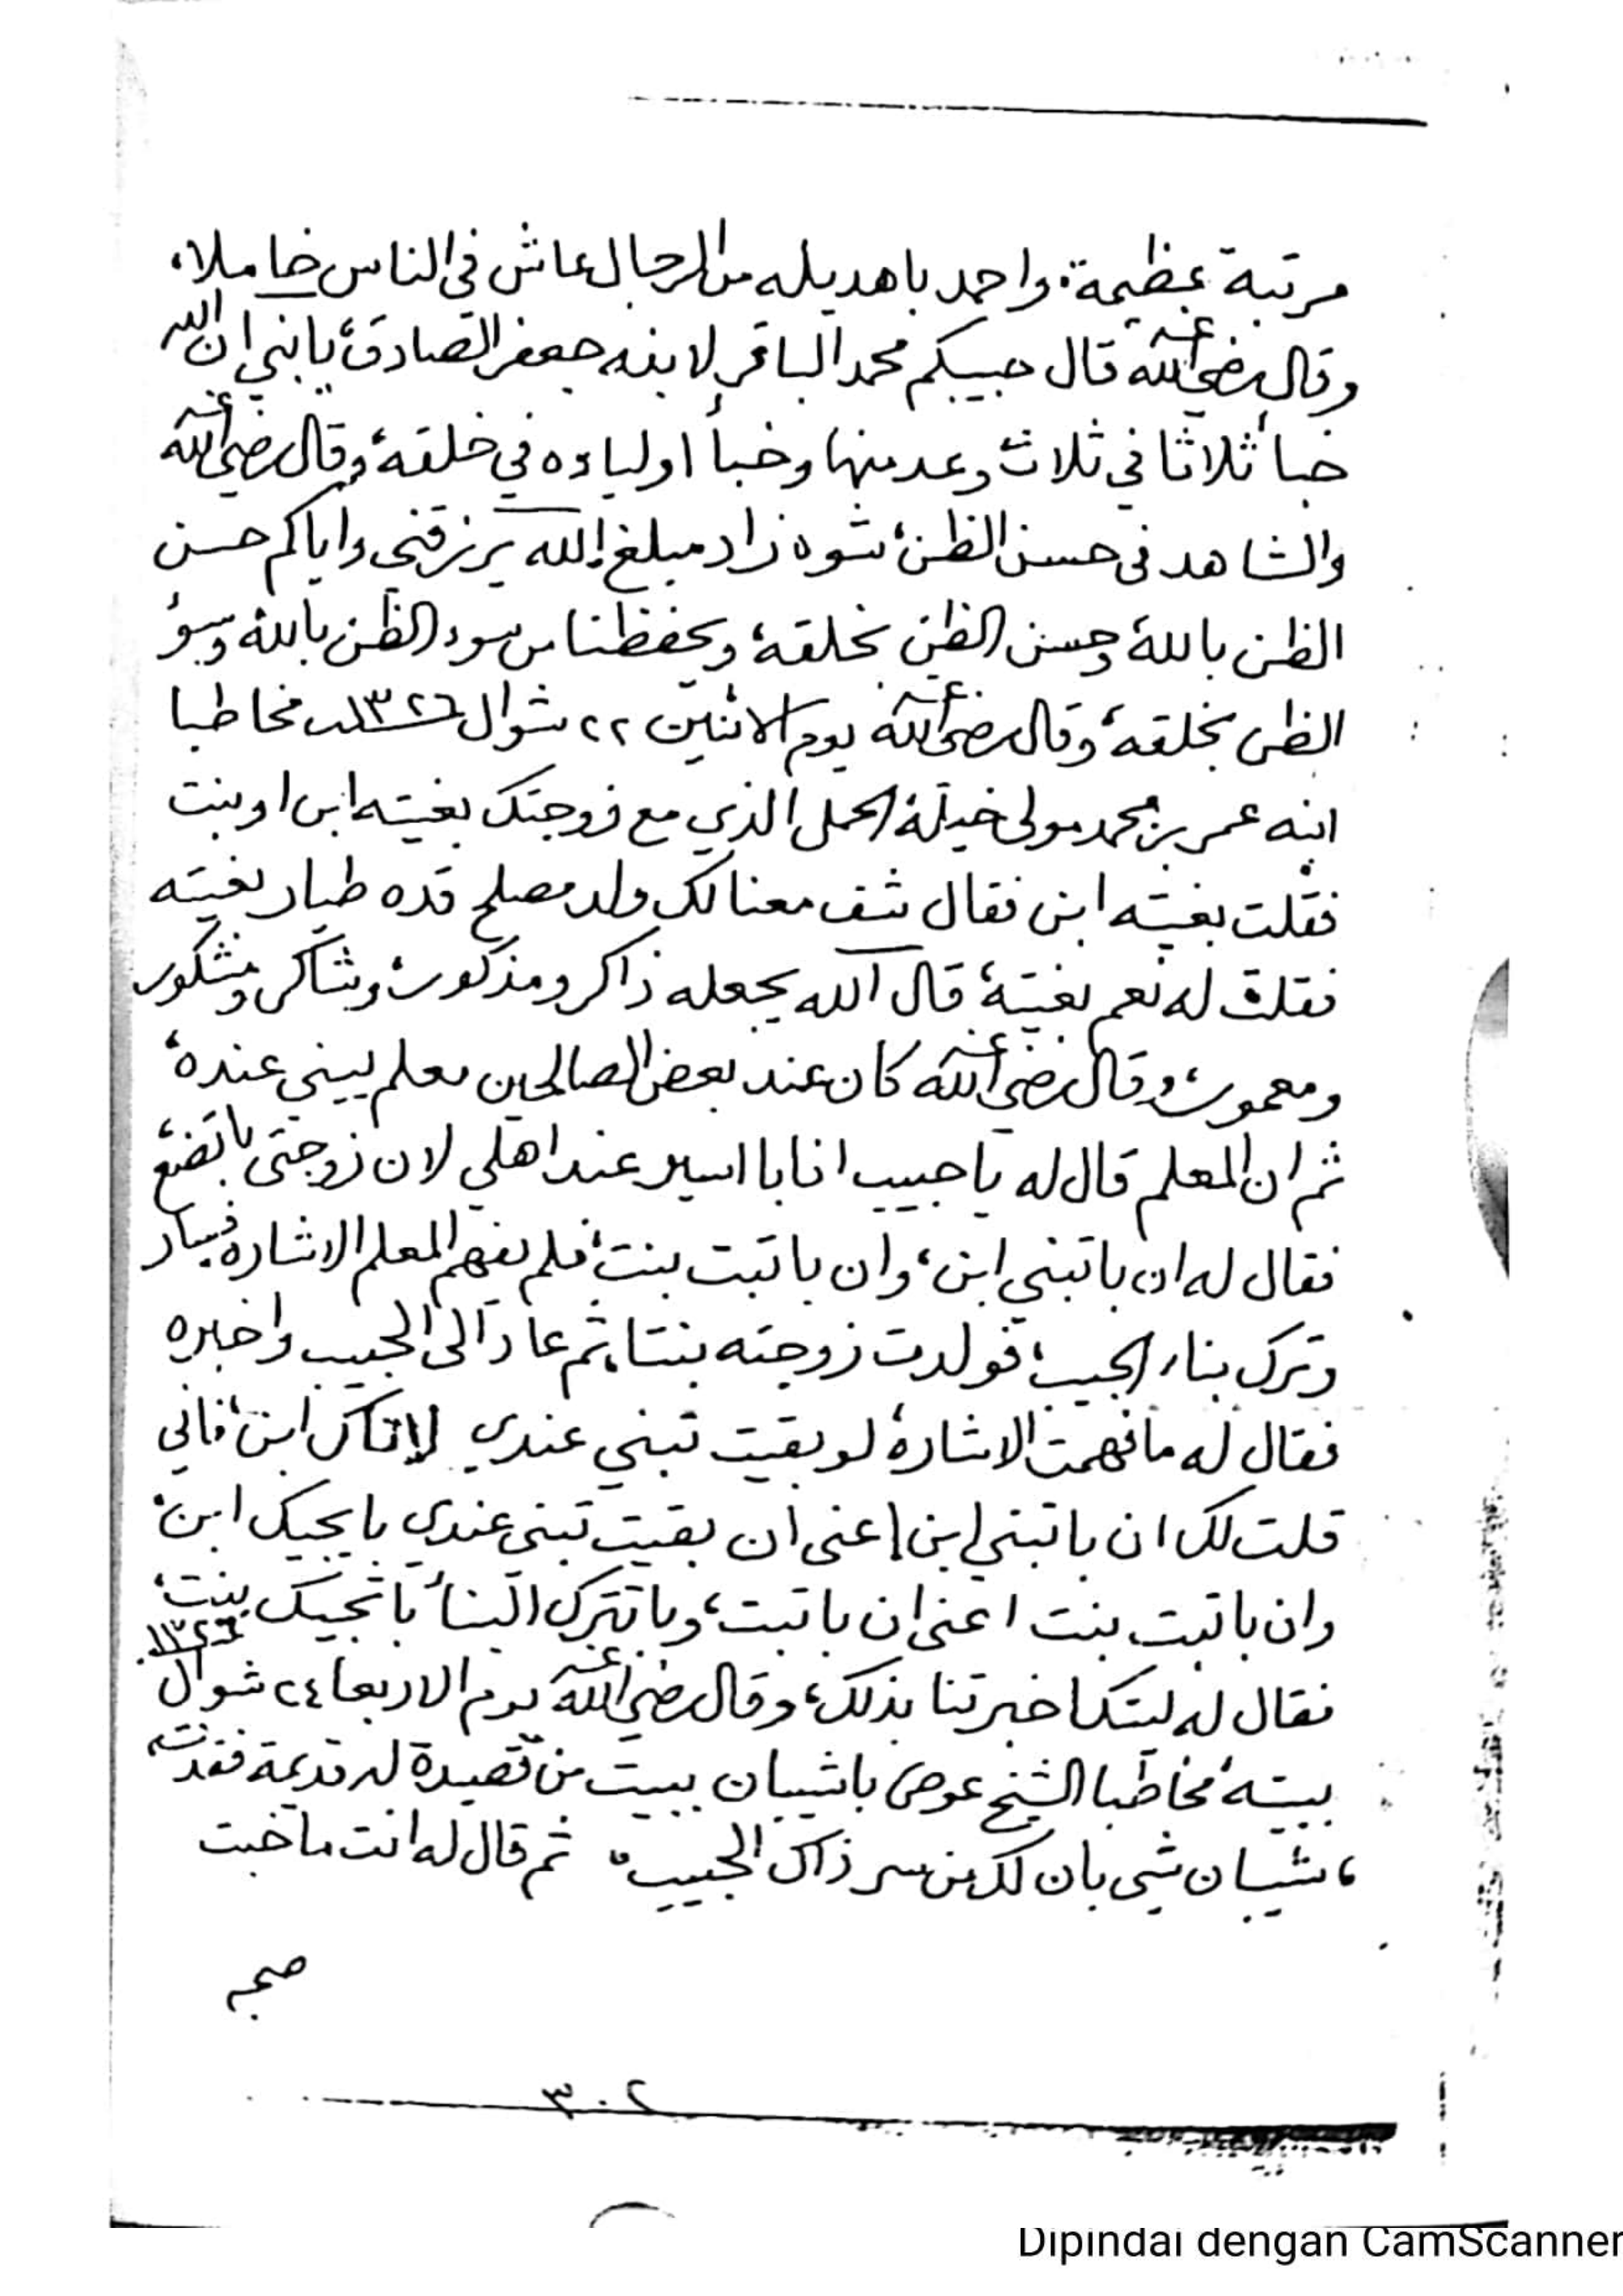 مرتبة عظيمة، واحمد باهديله من الرجال عاش في الناس خاملا،
وقال رضي الله عنه قال حبيبكم محمد الباقر لابنه جعفر الصادق، يا بني ان الله
خبأ ثلاثا في ثلاث وعد منها وخبأ اولياءه في خلقه، وقال رضي الله عنه
والشاهد في حسن الظن، شوه زاد مبلغ الله يرزقني واياكم حسن
الظن بالله، وحسن الظن بخلقه، ويحفظنا من سوء الظن بالله وسوء
الظن بخلقه، وقال رضي الله عنه يوم الاثنين ٢٢ شوال ١٣٢٦ مخاطبا
ابنه عمر بن محمد مولى خيلة الحمل الذي مع زوجتك بغيته ابن او بنت
فقلت بغيته ابن فقال شف معنا لك ولد مصلح قده طيار بغيته
فقلت له نعم بغيته، قال الله يجعله ذاكر ومذكور، وشاكر ومشكور
ومعمور، وقال رضي الله عنه كان عند بعض الصالحين معلم يبني عنده،
ثم ان المعلم قال له يا حبيب انا با اسير عند اهلي لان زوجتي با تضع،
فقال له ان باتبني ابن، وان باتبت بنت، فلم يفهم المعلم الاشاره فسار
وترك بناء الحبيب، فولدت زوجته بنتا، ثم عاد الى الحبيب واخبره
فقال له ما فهمت الاشارة، لو بقيت تبني عندي لاتاك ابن، فاني
قلت لك ان باتبني ابن اعني ان بقيت تبني عندي با يجيك ابن،
وان باتبت بنت اعني ان باتبت، وباتترك البناء با تجيك بنت،
فقال له ليتك اخبرتنا بذلك، وقال رضي الله عنه يوم الاربعا ٢٤ شوال ١٣٢٦
ببيته، مخاطبا الشيخ عوض باشيبان ببيت من قصيدة له قديمة فقدت
، شيبان شي بان لك من سر ذاك الحبيب، ثم قال له انت ماخبت
٣٠٢
Dipindai dengan CamScanner